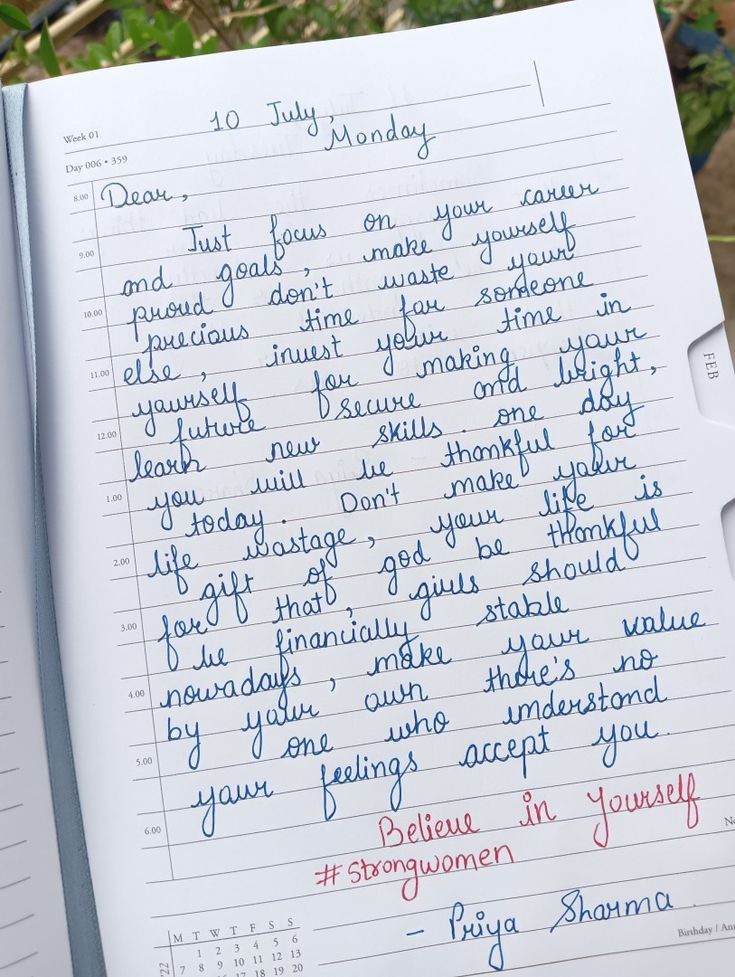 Week 01
10 July,
Monday
Day 006 • 359
8.00
Dear,
Just focus on your career
9.00
and goals, make yourself
proud don't waste your
10.00
precious time for someone
else, invest your time in
11.00
yourself for making your
future secure and bright,
12.00
learn new skills. one day
you will be thankful for
1.00
today. Don't make your
life wastage, your life is
2.00
gift of god be thankful
for that, girls should
3.00
be financially stable
nowadays, make your value
4.00
by your own there's no
one who understand
5.00
your feelings accept you.
6.00
Believe in yourself
#strongwomen
- Priya Sharma
FEB
M T W T F S S
1 2 3 4 5 6
7 8 9 10 11 12 13
17 18 19 20